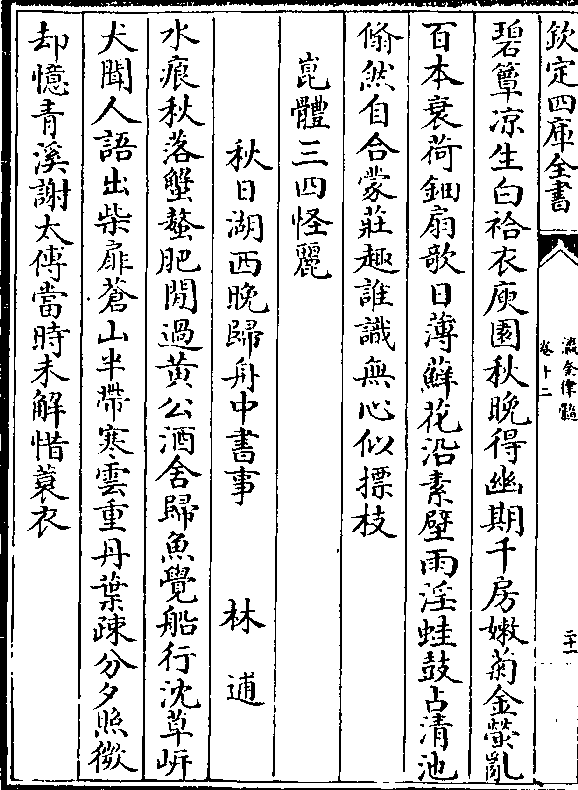 欽定四庫全書
瀛奎律髓
卷十二
二十一
碧簟凉生白袷衣庾園秋晚得幽期千房嫩菊金螢亂
百本衰荷鈿扇歌日薄蘚花沿素壁雨淫蛙鼓占清池
翛然自合蒙莊趣誰識無心似摽枝
崑體三四怪麗
秋日湖西晚歸舟中書事　林逋
水痕秋落蟹螯肥閒過黃公酒舍歸魚覺船行沈草岍
犬聞人語出柴扉蒼山半帶寒雲重丹葉疎分夕照㣲
却憶青溪謝太傅當時未解惜蓑衣